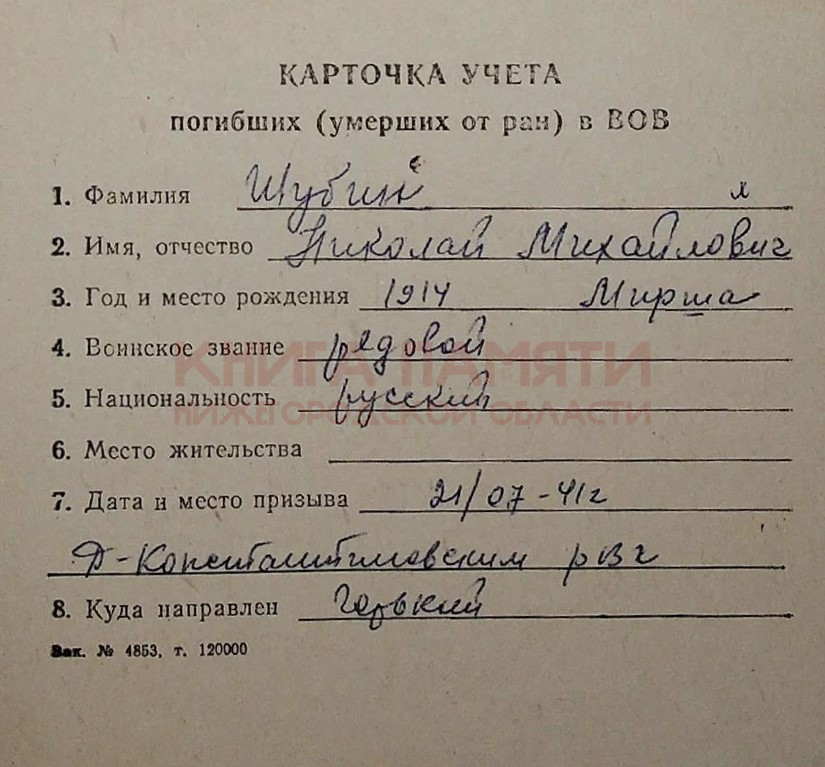 КАРТОЧКА УЧЕТА
погибших (умерших от ран) в ВОВ
1. Фамилия Шубин
2. Имя, отчество Николай Михайлович
3. Год и место рождения 1914 Мирша
4. Воинское звание рядовой
КНИГА ПАМЯТИ
5. Национальность русский
НИЖЕГОРОДСКОЙ ОБЛАСТИ
6. Место жительства
7. Дата и место призыва 21/07-41г
Д-Константиновским рвк
8. Куда направлен Горький
Зак. № 4853, т. 120000